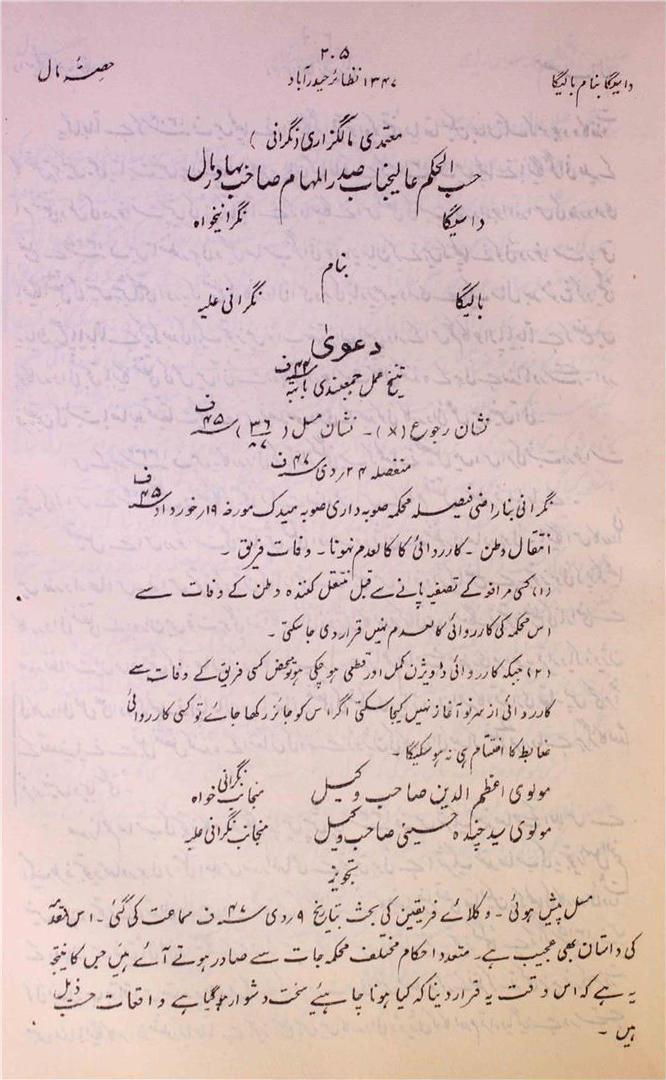 ۲۰۵
داسیگا بنام بالیگا
۱۳۴۷ نظائر حیدرآباد
حصۂ مال
معتمدی مالگزاری (نگرانی)
حسب الحکم عالیجناب صدر المہام صاحب بہادر مال
داسیگا نگرانیخواہ
بنام
بالیگا نگرانی علیہ
دعویٰ
تنسیخ عمل جمعبندی بابتہ ۴۲ ف
نشان رجوع (×)۔ نشان مسل (۳۶/۸۷) ۴۵ ف
منفصلہ ۲۴ ردی ۴۷ ف
نگرانی بناراضی فیصلہ محکمہ صوبہ داری صوبہ میدک مورخہ ۱۹ رخورداد ۴۵ ف
انتقال وطن۔ کارروائی کا کالعدم نہونا۔ وفات فریق۔
(۱) کسی مرافعہ کے تصفیہ پانے سے قبل منتقل کنندہ وطن کے وفات سے
اس محکمہ کی کارروائی کالعدم نہیں قرار دی جا سکتی۔
(۲) جبکہ کارروائی ڈویژن مکمل اور قطعی ہوچکی ہو تو محض کسی فریق کے وفات سے
کارروائی از سرنو آغاز نہیں کیجا سکتی اگر اس کو جائز رکھا جائے تو کسی کارروائی
ضابطہ کا اختتام ہی نہ ہو سکیگا۔
مولوی اعظم الدین صاحب وکیل منجانب نگرانی خواہ
مولوی سید چندہ حسینی صاحب وکیل منجانب نگرانی علیہ
تجویز
مسل پیش ہوئی۔ وکلائے فریقین کی بحث بتاریخ ۹ ردی ۴۷ ف سماعت کی گئی۔ اس مقدمہ
کی داستان بھی عجیب ہے۔ متعدد احکام مختلف محکمہ جات سے صادر ہوتے آئے ہیں جس کا نتیجہ
یہ ہے کہ اس وقت یہ قرار دینا کہ کیا ہونا چاہئیے سخت دشوار ہو گیا ہے واقعات حسب ذیل
ہیں۔